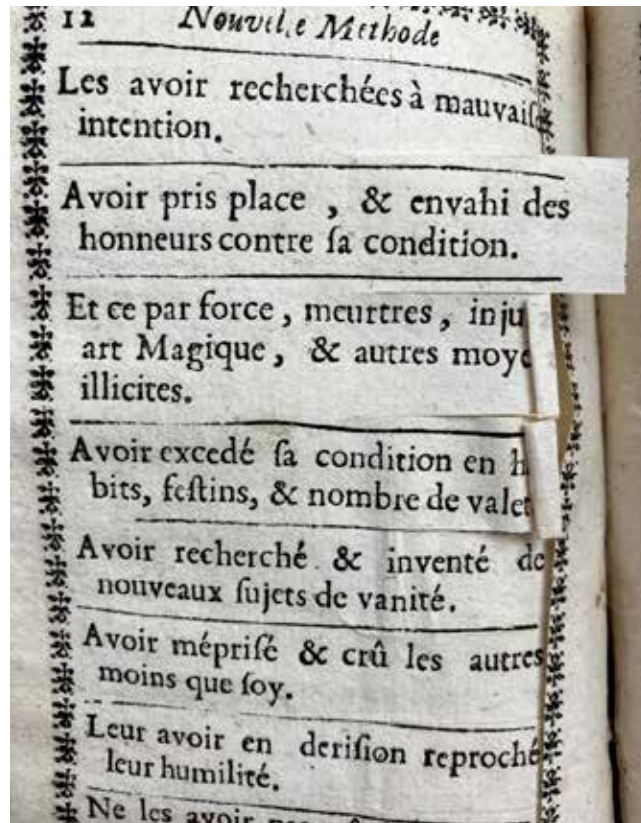 12 Nouvelle Methode
Les avoir recherchées à mauvaise
intention.
Avoir pris place , & envahi des
honneurs contre ſa condition.
Et ce par force , meurtres , inju
art Magique , & autres moye
illicites.
Avoir excedé ſa condition en h
bits, feſtins, & nombre de valet
Avoir recherché & inventé de
nouveaux ſujets de vanité.
Avoir mépriſé & crû les autres
moins que ſoy.
Leur avoir en deriſion reproché
leur humilité.
Ne les avoir